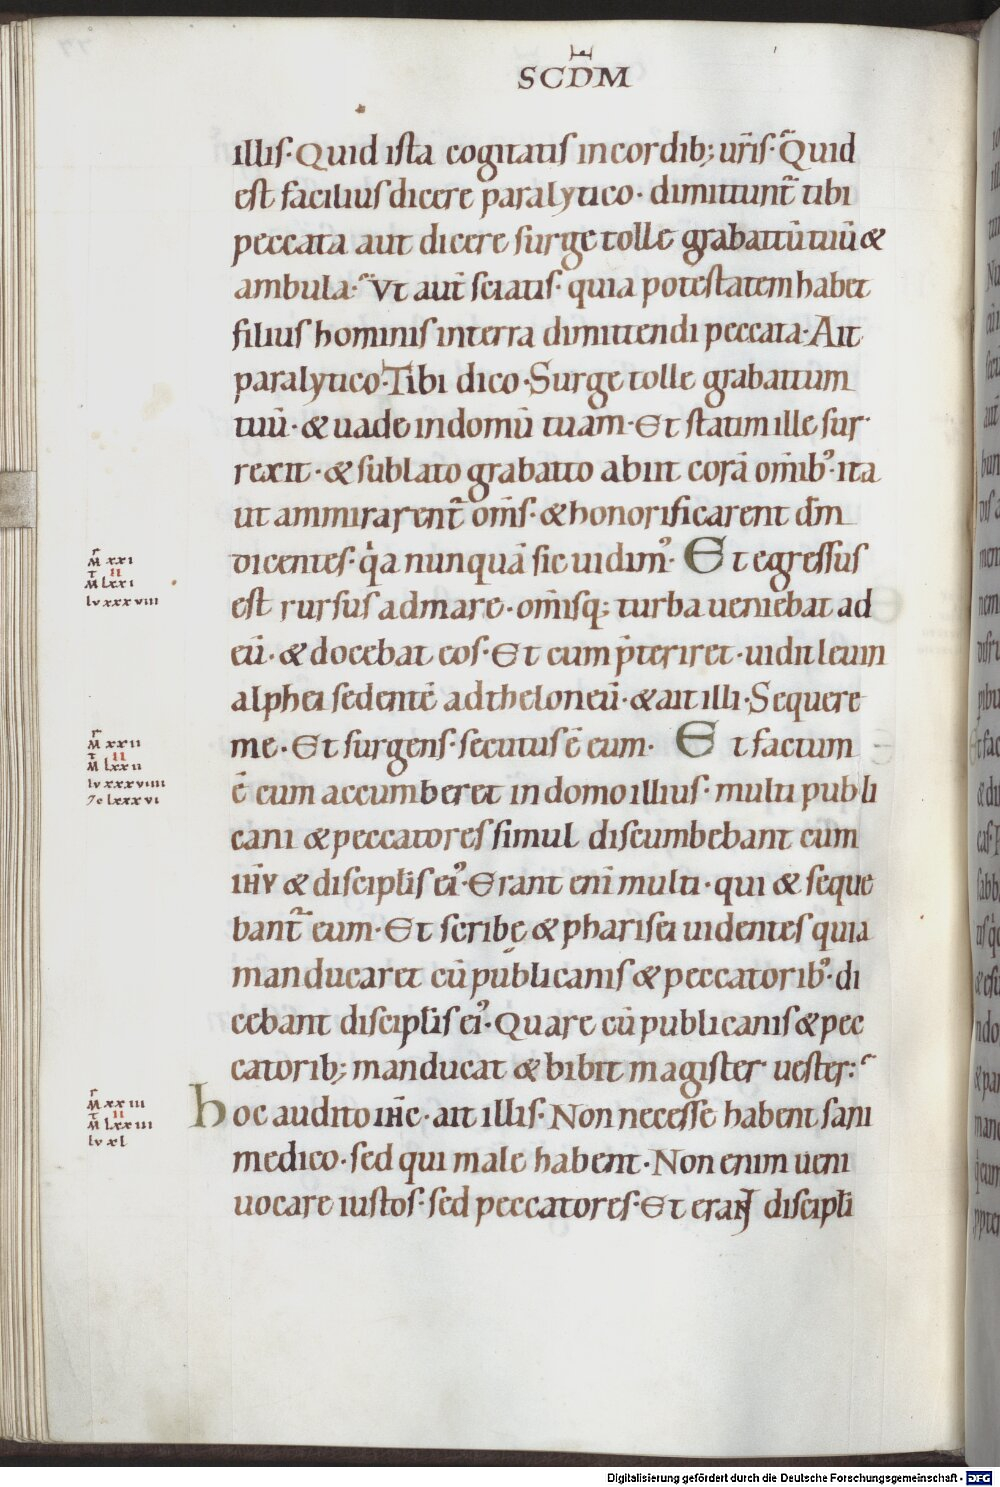 SCDM̅
illis· Quid ista cogitatis in cordib; ur̅is· Quid
est facilius dicere paralytico· dimittunt̅ tibi
peccata aut dicere surge tolle grabattu̅ tuu̅ &
ambula· Vt aut̅ sciatis· quia potestatem habet
filius hominis in terra dimittendi peccata· Ait
paralytico· Tibi dico· Surge tolle grabattum
tuu̅· & uade in domu̅ tuam· Et statim ille sur
rexit· & sublato grabatto abiit cora̅ om̅ib᾽· ita
ut ammirarent̅ om̅s· & honorificarent dm̅
dicentes· qͥa nunqua̅ sic uidim᾽· Et egressus
M̅ xxi
T II
M lxxi
lu xxxviii
est rursus ad mare· om̅isq; turba ueniebat ad
eu̅· & docebat eos· Et cum p̅teriret· uidit leuin
alphei sedente̅ ad theloneu̅· & ait illi· Sequere
me· Et surgens· secutus e̅ eum· Et factum
M̅ xxii
T II
M lxxii
lu xxxviiii
e̅ cum accumberet in domo illius· multi publi
cani & peccatores simul discumbebant cum
ihv̅ & discipl̅is ei᾽· Erant eni̅ multi· qui & seque
bant̅ eum· Et scribę & pharisei uidentes quia
manducaret cu̅ publicanis & peccatorib᾽· di
cebant discipl̅is ei᾽· Quare cu̅ publicanis & pec
catorib; manducat & bibit magister uester:
M̅ xxiii
T II
M lxxiii
lu xl
hoc audito ih̅c· ait illis· Non necesse habent sani
medico· sed qui male habent· Non enim ueni
uocare iustos· sed peccatores· Et erant discipl̅i
Digitalisierung gefördert durch die Deutsche Forschungsgemeinschaft - DFG